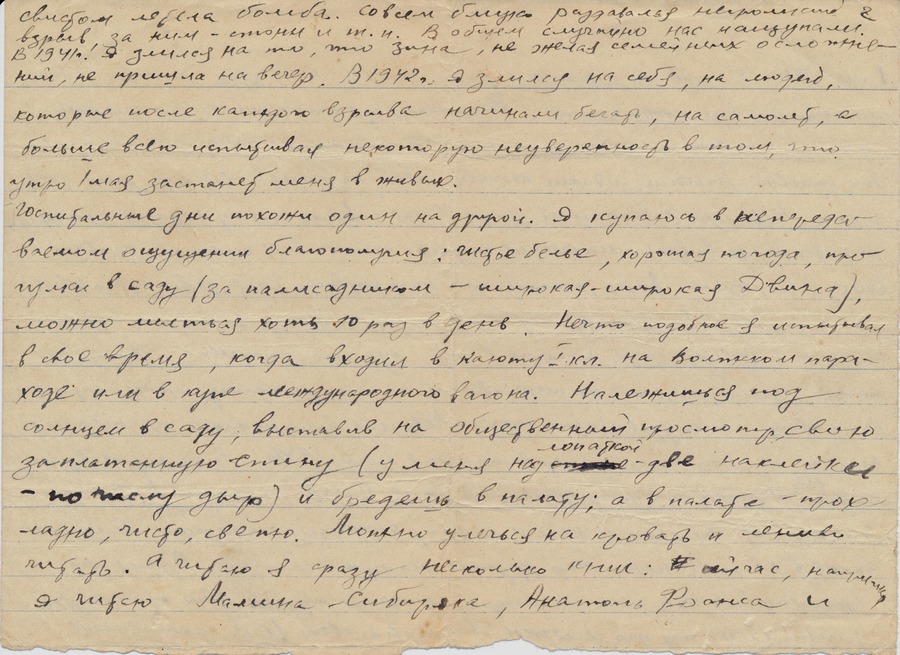 свистом летела бомба. Совсем близко раздавался негромкий
взрыв, за ним – стоны и т.п. В общем случайно нас нащупали.
В 1941г! Я злился на то, что Зина, не желая семейных осложне-
ний, не пришла на вечер. В 1942г. Я злился на себя, на людей,
которые после каждого взрыва начинали бегать, на самолет, а
больше всего испытывая некоторую неуверенность в том, что
утро 1 мая застанет меня в живых.
Госпитальные дни похожи один на другой. Я купаюсь в непереда-
ваемом ощущении благополучия: чистое белье, хорошая погода, про-
гулки в саду (за палисадником – широкая-широкая Двина),
можно мыться хоть 10 раз в день. Нечто подобное я испытывал
в свое время, когда входил в каюту I кл. на Волжском паро-
ходе или в купе международного вагона. Належишься под
солнцем в саду, выставив на общественный просмотр свою
заплатанную спину (у меня над лопаткой две наклейки
– по числу дыр) и бредешь в палату; а в палате – прох-
ладно, чисто, светло. Можно улечься на кровать и лениво
читать. А читаю я сразу несколько книг: сейчас, например,
я читаю Мамина-Сибиряка, Анатоль Франса и